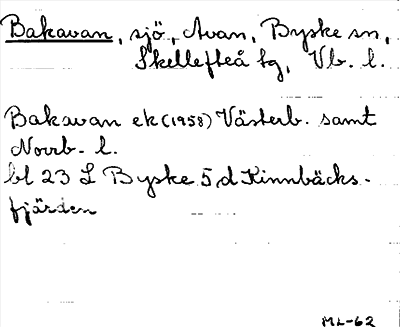 Bakavan, sjö, Avan, Byske sn,
Skellefteå tg, Vb. l.
Bakavan ek (1958) Västerb. samt
Norrb. l.
bl 23 L Byske 5 d Kinnbäcks-
fjärden
ML-62